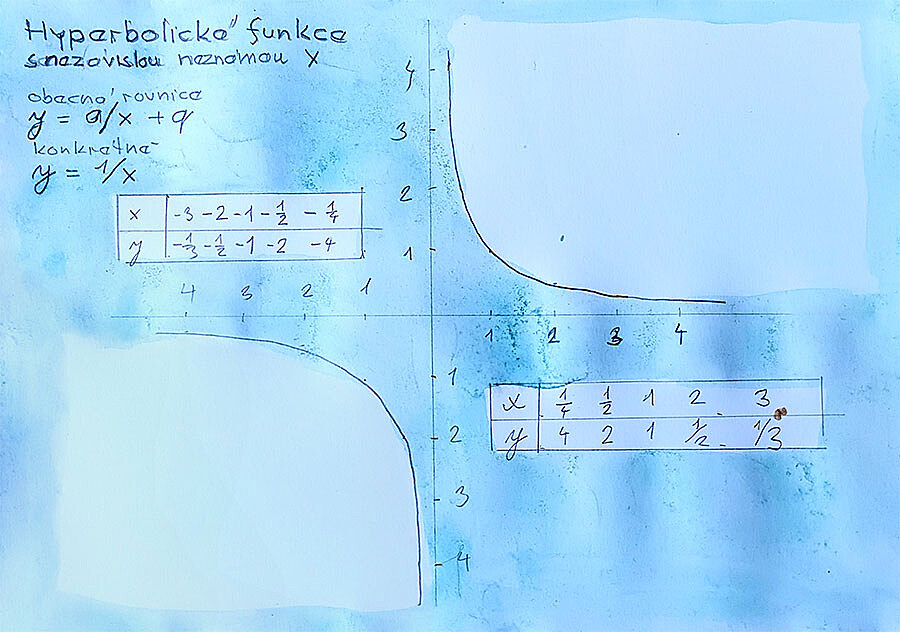 Hyperbolická funkce
s nezávislou neznámou x
obecná rovnice
y = a/x + q
konkrétně
y = 1/x
x -3 -2 -1 -1/2 -1/4
y -1/3 -1/2 -1 -2 -4
4
3
2
1
4 3 2 1
1 2 3 4
1
2
3
4
x 1/4 1/2 1 2 3
y 4 2 1 1/2 1/3